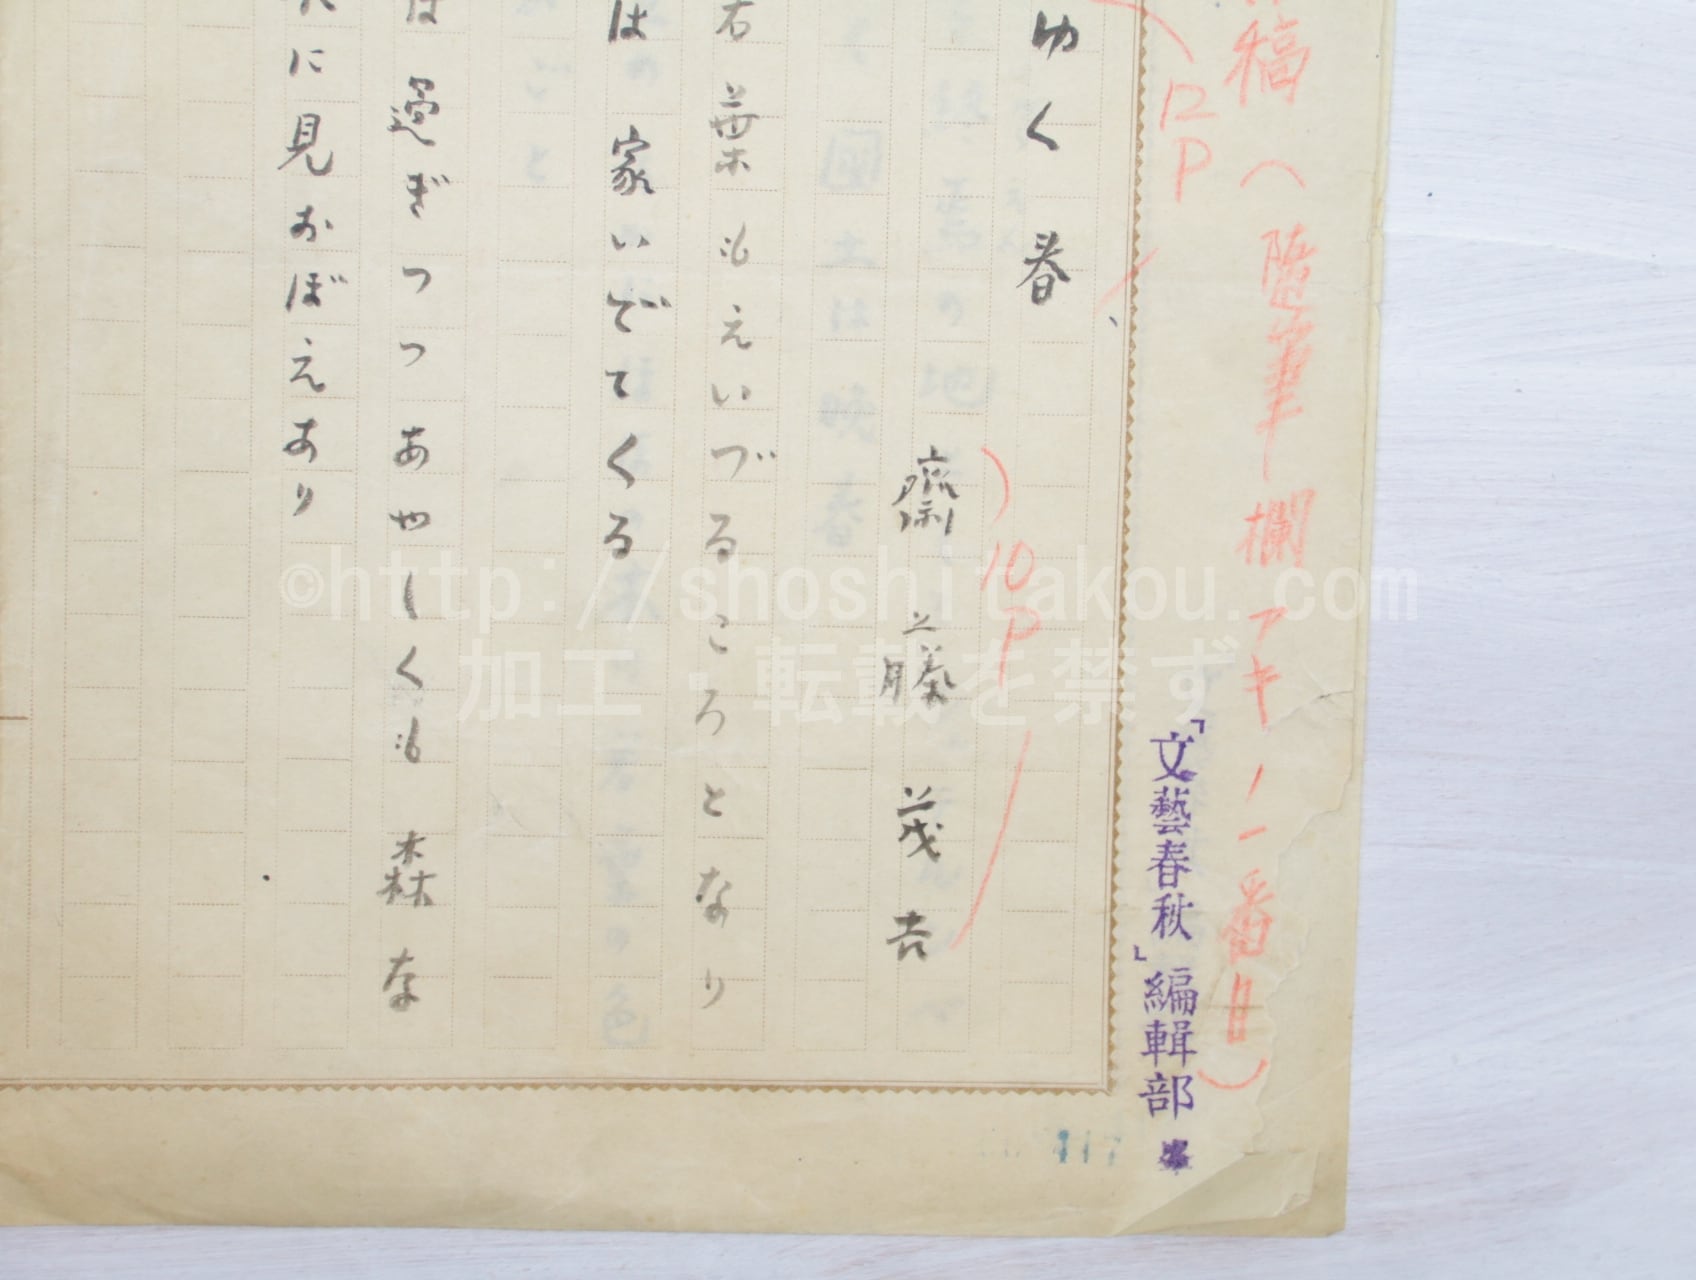 稿(随筆欄アキノ一番目)
「文藝春秋」編輯部
12P
ゆく春
10P
齋藤茂吉
若葉もえいづるころとなり
は家いでてくる
は過ぎつつあやしくも森な
に見おぼえあり
©http://shoshitakou.com
加工・転載を禁ず